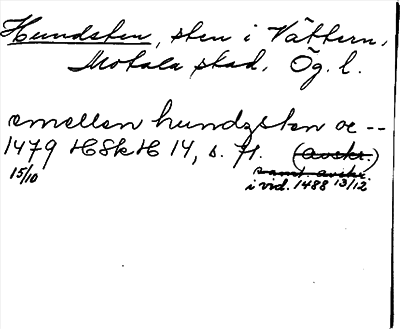 Hundsten, sten i Vättern,
Motala stad, Ög. l.
emellan hundzsten oc --
1479 HSkH 14, s. 71. (avskr.)
15/10 samt. avskr.
i vid. 1488 13/12